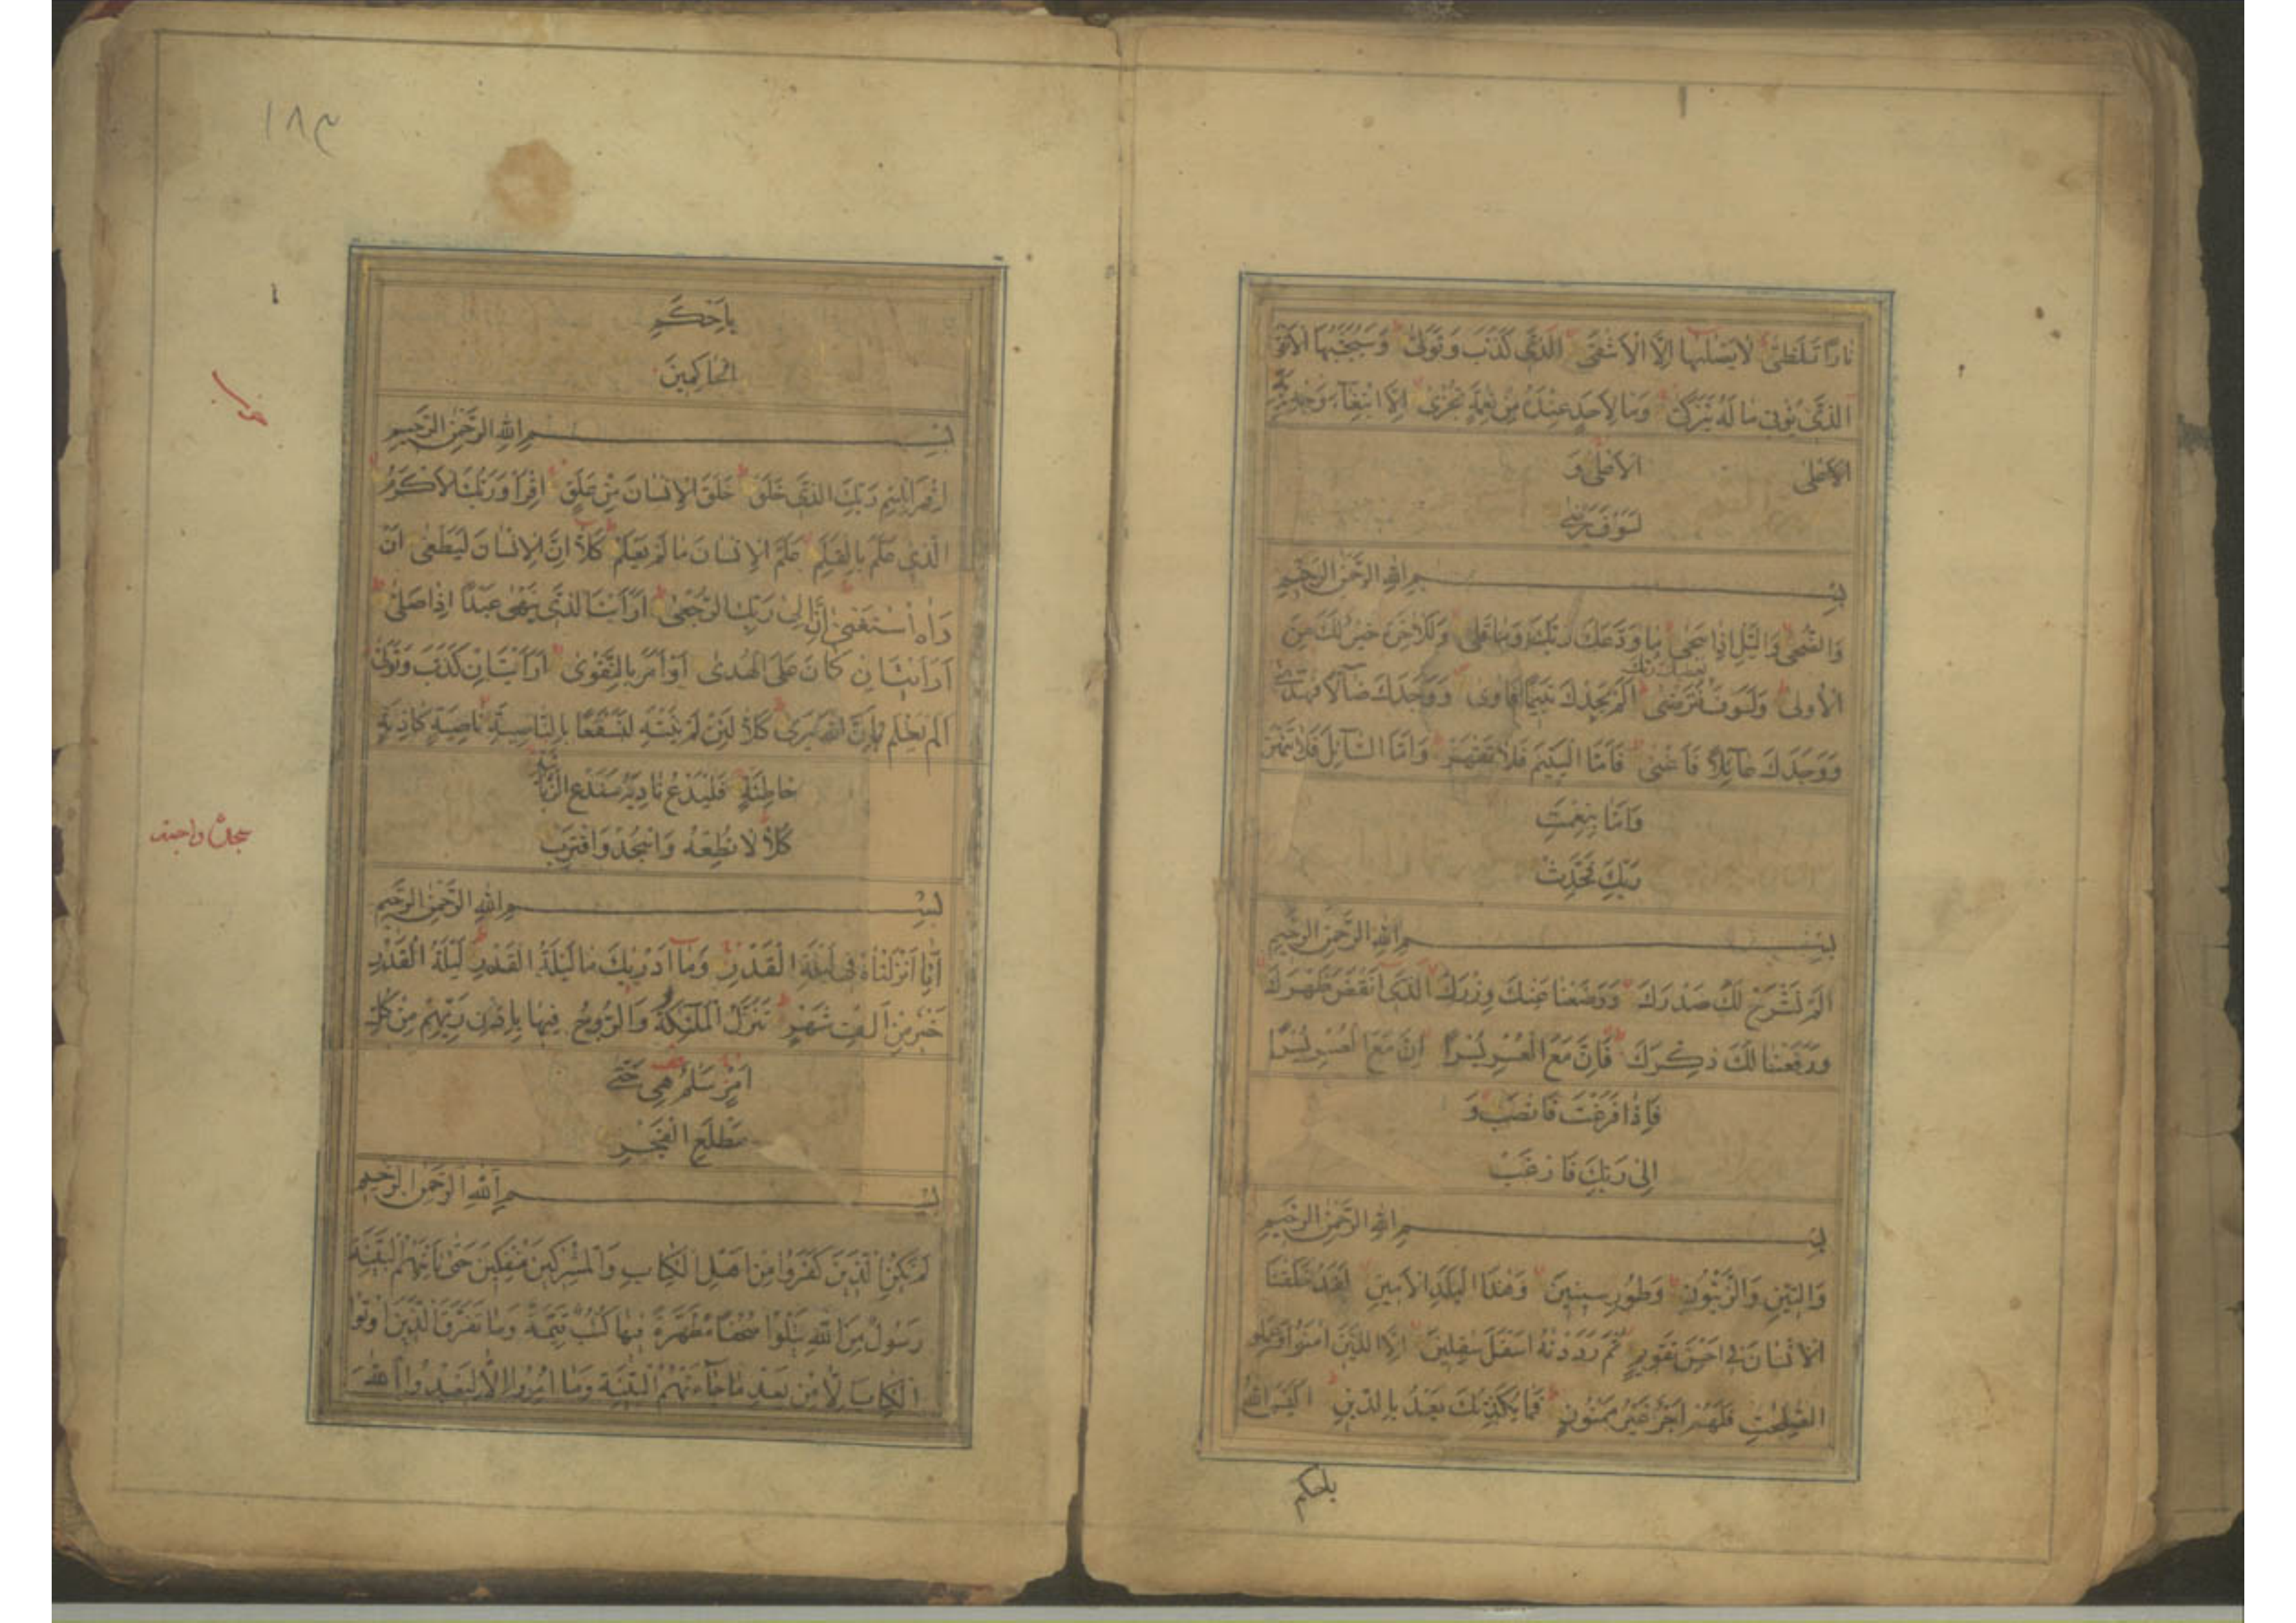 نارًا تَلَظّىٰ لا يَصْلٰيها اِلَّا الْاَشْقَى الَّذى كَذَّبَ وَتَوَلّىٰ وَسَيُجَنَّبُهَا الْاَتْقَى
الَّذى يُؤْتى مالَهُ يَتَزَكّىٰ وَمالِاَحَدٍ عِنْدَهُ مِنْ نِعْمَةٍ تُجْزىٰ اِلَّا ابْتِغآءَ وَجْهِ رَبِّهِ
الاَعْلى الاَعْلى وَ
لَسَوْفَ يَرْضى
بِسْمِ اللهِ الرَّحْمٰنِ الرَّحيمِ
وَالضُّحٰى وَالَّيْلِ اِذا سَجٰى ما وَدَّعَكَ رَبُّكَ وَما قَلٰى وَلَلْاٰخِرَةُ خَيْرٌ لَكَ مِنَ
الْاُولىٰ وَلَسَوْفَ يُعْطيكَ رَبُّكَ فَتَرْضىٰ اَلَمْ يَجِدْكَ يَتيمًا فَاٰوىٰ وَوَجَدَكَ ضآلًّا فَهَدىٰ
وَوَجَدَكَ عآئِلًا فَاَغْنىٰ فَاَمَّا الْيَتيمَ فَلا تَقْهَرْ وَاَمَّا السّآئِلَ فَلا تَنْهَرْ
وَاَمّا بِنِعْمَتِ
رَبِّكَ فَحَدِّثْ
بِسْمِ اللهِ الرَّحْمٰنِ الرَّحيمِ
اَلَمْ نَشْرَحْ لَكَ صَدْرَكَ وَوَضَعْنا عَنْكَ وِزْرَكَ الَّذى اَنْقَضَ ظَهْرَكَ
وَرَفَعْنا لَكَ ذِكْرَكَ فَاِنَّ مَعَ الْعُسْرِ يُسْرًا اِنَّ مَعَ الْعُسْرِ يُسْرًا
فَاِذا فَرَغْتَ فَانْصَبْ وَ
اِلى رَبِّكَ فَارْغَبْ
بِسْمِ اللهِ الرَّحْمٰنِ الرَّحيمِ
وَالتّينِ وَالزَّيْتُونِ وَطُورِ سينينَ وَهٰذَا الْبَلَدِ الْاَمينِ لَقَدْ خَلَقْنَا
الْاِنْسانَ فى اَحْسَنِ تَقْويمٍ ثُمَّ رَدَدْنٰهُ اَسْفَلَ سٰفِلينَ اِلَّا الَّذينَ اٰمَنُوا وَعَمِلُو
الصّٰلِحٰتِ فَلَهُمْ اَجْرٌ غَيْرُ مَمْنُونٍ فَما يُكَذِّبُكَ بَعْدُ بِالدّينِ اَلَيْسَ اللهُ
باحكم
١٨٣
بِاَحْكَمِ
الْحاكِمينَ
بِسْمِ اللهِ الرَّحْمٰنِ الرَّحيمِ
اِقْرَأْ بِاسْمِ رَبِّكَ الَّذى خَلَقَ خَلَقَ الْاِنْسانَ مِنْ عَلَقٍ اِقْرَأْ وَرَبُّكَ الْاَكْرَمُ
الَّذى عَلَّمَ بِالْقَلَمِ عَلَّمَ الْاِنْسانَ ما لَمْ يَعْلَمْ كَلّا اِنَّ الْاِنْسانَ لَيَطْغىٰ اَنْ
رَاٰهُ اسْتَغْنىٰ اِنَّ اِلىٰ رَبِّكَ الرُّجْعىٰ اَرَاَيْتَ الَّذى يَنْهىٰ عَبْدًا اِذا صَلّىٰ
اَرَاَيْتَ اِنْ كانَ عَلَى الْهُدىٰ اَوْ اَمَرَ بِالتَّقْوىٰ اَرَاَيْتَ اِنْ كَذَّبَ وَتَوَلّىٰ
اَلَمْ يَعْلَمْ بِاَنَّ اللهَ يَرىٰ كَلّا لَئِنْ لَمْ يَنْتَهِ لَنَسْفَعًا بِالنّاصِيَةِ ناصِيَةٍ كاذِبَةٍ
خاطِئَةٍ فَلْيَدْعُ نادِيَهُ سَنَدْعُ الزَّبانِيَةَ
كَلّا لا تُطِعْهُ وَاسْجُدْ وَاقْتَرِبْ
سجدۀ واجبة
بِسْمِ اللهِ الرَّحْمٰنِ الرَّحيمِ
اِنّا اَنْزَلْناهُ فى لَيْلَةِ الْقَدْرِ وَما اَدْرٰيكَ ما لَيْلَةُ الْقَدْرِ لَيْلَةُ الْقَدْرِ
خَيْرٌ مِنْ اَلْفِ شَهْرٍ تَنَزَّلُ الْمَلٰٓئِكَةُ وَالرُّوحُ فيها بِاِذْنِ رَبِّهِمْ مِنْ كُلِّ
اَمْرٍ سَلٰمٌ هِىَ حَتّٰى
مَطْلَعِ الْفَجْرِ
بِسْمِ اللهِ الرَّحْمٰنِ الرَّحيمِ
لَمْ يَكُنِ الَّذينَ كَفَرُوا مِنْ اَهْلِ الْكِتابِ وَالْمُشْرِكينَ مُنْفَكّينَ حَتّٰى تَاْتِيَهُمُ الْبَيِّنَةُ
رَسُولٌ مِنَ اللهِ يَتْلُوا صُحُفًا مُطَهَّرَةً فيها كُتُبٌ قَيِّمَةٌ وَما تَفَرَّقَ الَّذينَ اُوتُوا
الْكِتابَ اِلّا مِنْ بَعْدِ ما جآءَتْهُمُ الْبَيِّنَةُ وَما اُمِرُوا اِلّا لِيَعْبُدُوا اللهَ